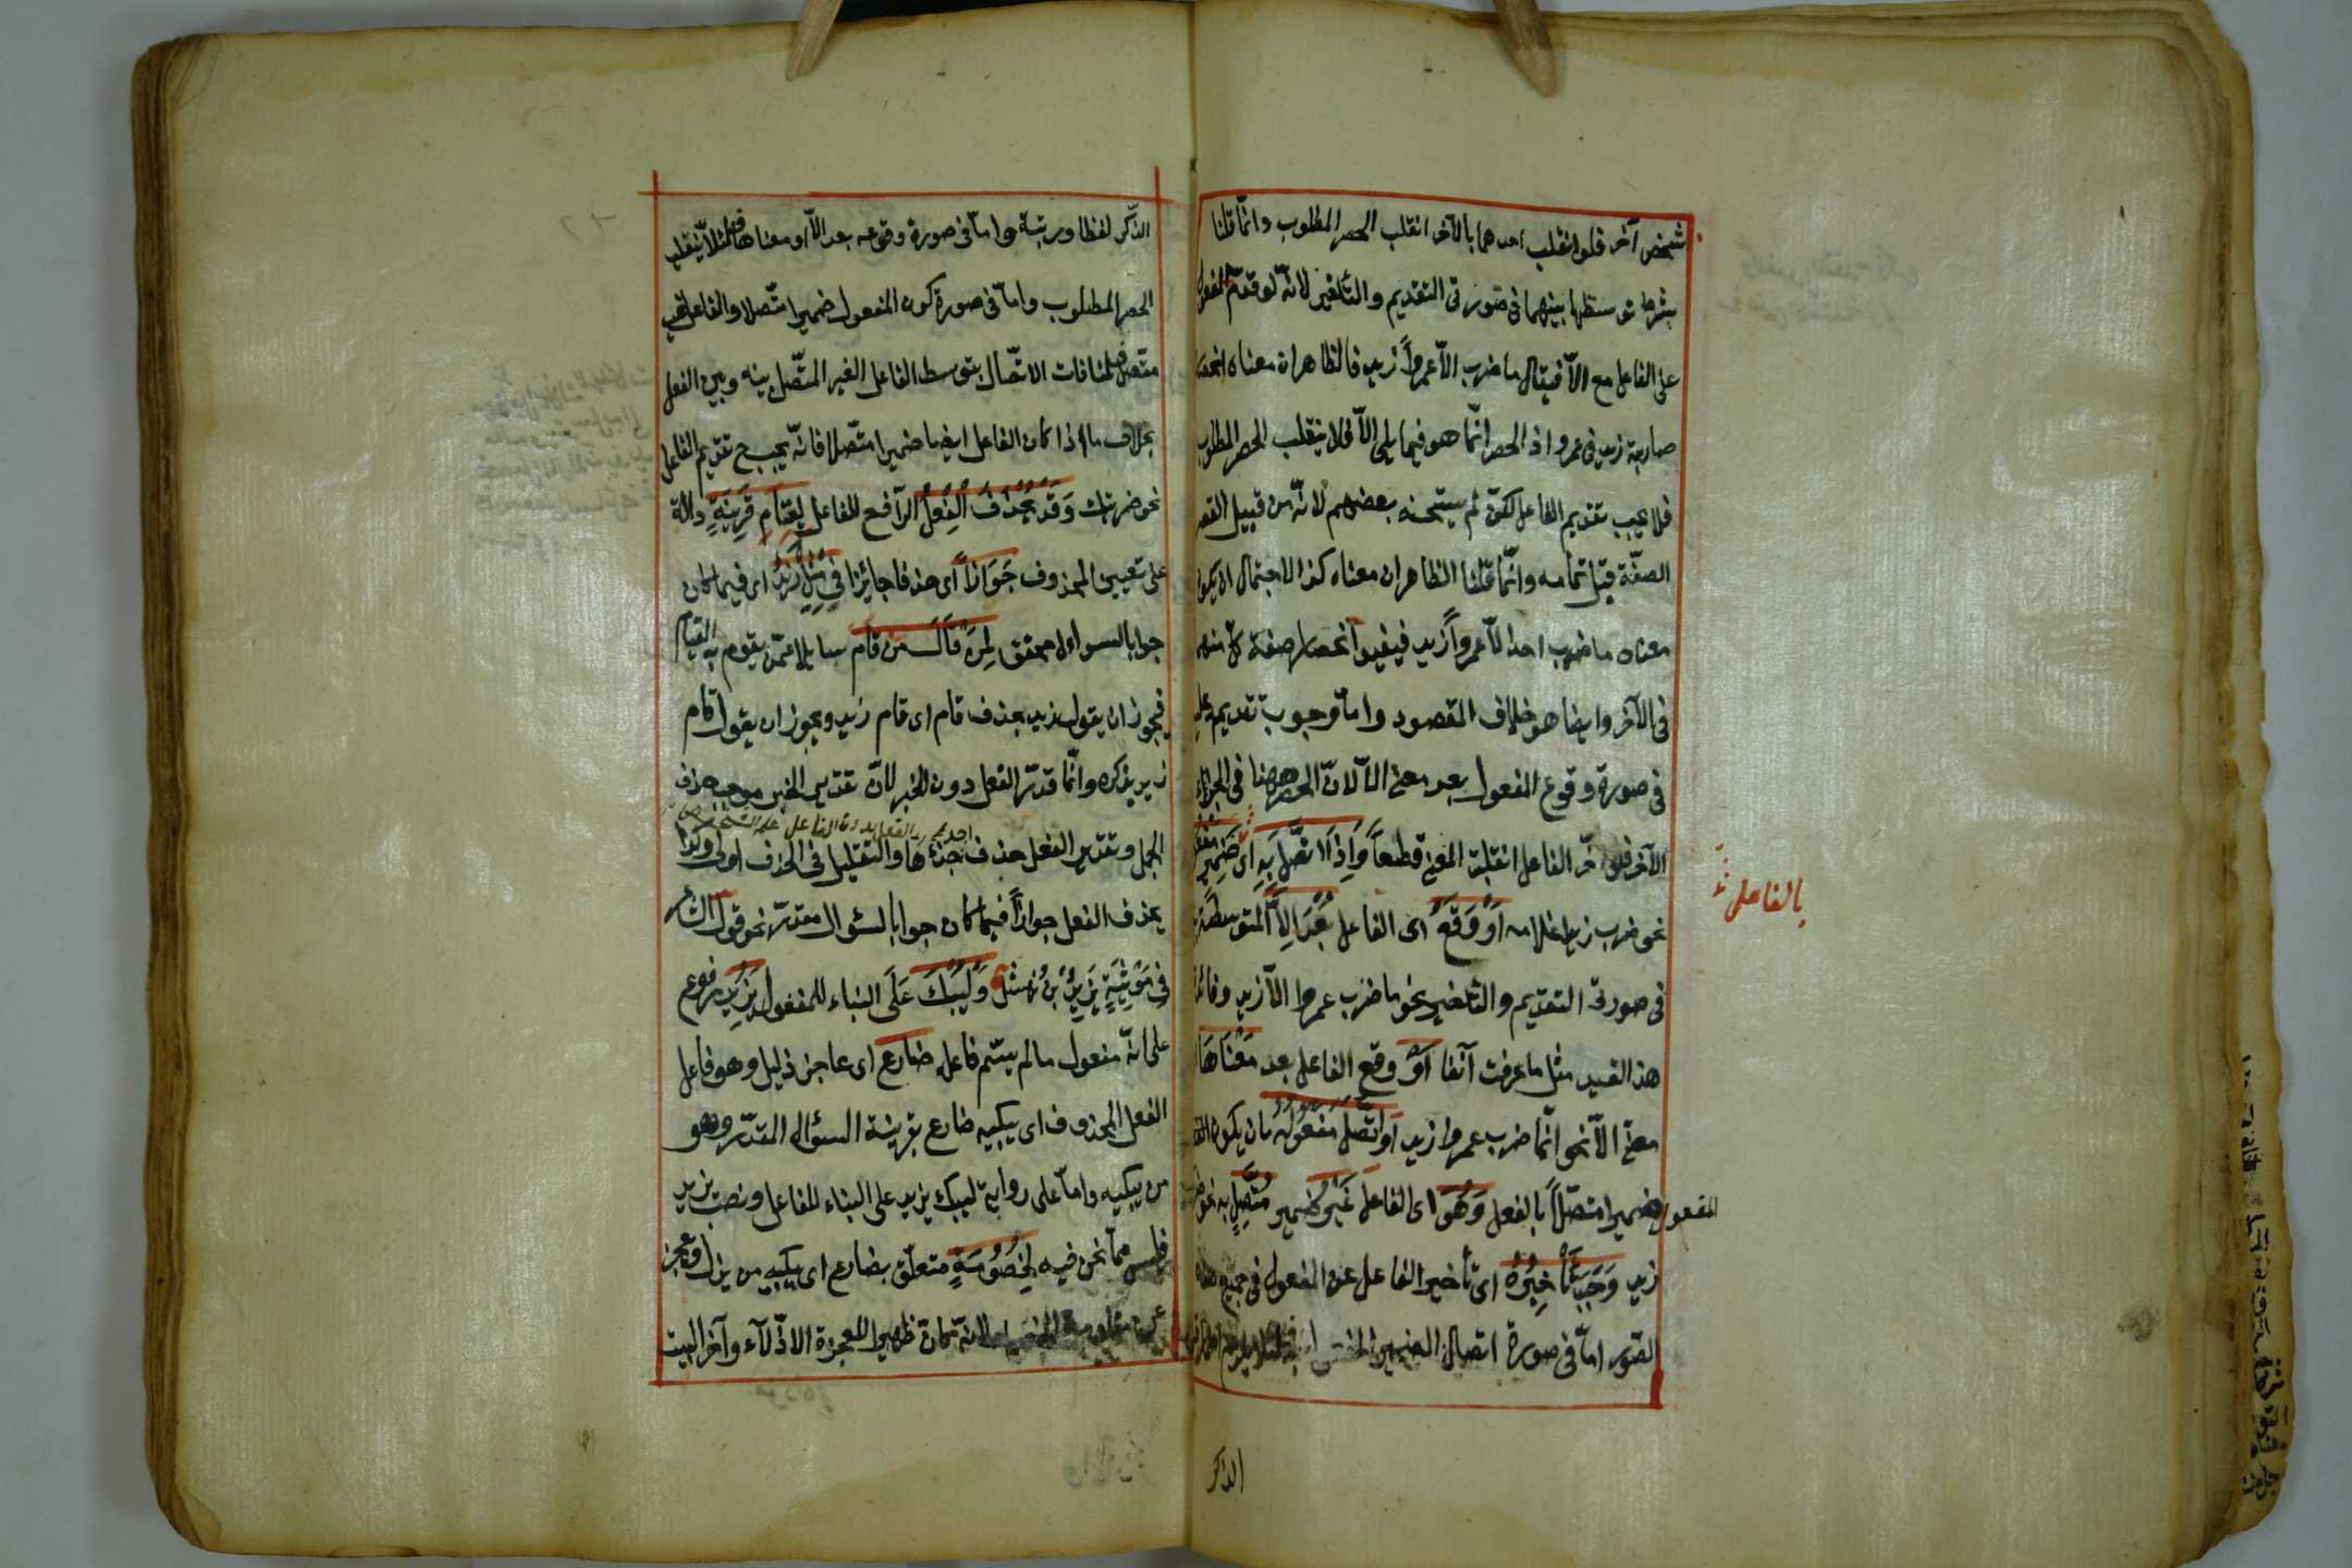 شخص آخر فلو انقلب احدهما بالآخر انقلب الحصر المطلوب وانّما قلنا
بشرط توسطها بينهما فى صورتى التقديم والتأخير لانّه لو قدّم المفعول
على الفاعل مع الاّ فيقال ما ضرب الاّ عمرواً زيد فالظاهر ان معناه انحصار
ضاربية زيد فى عمرو اذ الحصر انّما هو فيما يلى الاّ فلا ينقلب الحصر المطلوب
فلا يجب تقديم الفاعل لكن لم يستحسنه بعضهم لانّه من قبيل القصر
الصفة قبل تمامه وانّما قلنا الظاهر ان معناه كذا لاحتمال ان يكون
معناه ما ضرب احد الاّ عمرواً زيد فيفيد انحصار صفة كل منهما
فى الآخر وايضا هو خلاف المقصود وامّا وجوب تقديمه على
فى صورة وقوع المفعول بعد معنى الاّ لانّ الحصر ههنا فى الجزء
الآخر فلو اخّر الفاعل انقلب المعنى قطعاً وَاِذَا اتّصَلَ بَهِ اى ضَمِيرُ مَفْعُولٍ
بالفاعل
نحو ضرب زيدا غلامه اَوْ وَقَعَ اى الفاعل بَعْدَ اِلاَّ المتوسطة بينهما
فى صورتى التقديم والتأخير نحو ما ضرب عمروا الاّ زيد وفائدة
هذا القيد مثل ما عرفت آنفا اَوْ وقع الفاعل بعد مَعْنَاهَا
معنى الاّ نحو انّما ضرب عمروا زيد اَوِ اتّصَلَ مَفْعُولُهُ بان يكون
المفعول ضميرا متصّلاً بالفعل وَهُوَ اى الفاعل غَيْرُ ضمير مُتّصِلٍ به نحو ضربك
زيد وَجَبَ تَأْخِيْرُهُ اى تأخير الفاعل عن المفعول فى جميع هذه
الصّور امّا فى صورة اتصال الضمير
الذكر
الذّكر لفظا ورتبة وامّا فى صورة وقوعه بعد الاّ او معناها فلئلاّ ينقلب
الحصر المطلوب وامّا فى صورة كون المفعول ضميرا متّصلا والفاعل غير
متّصل فلمنافات الاتّصال بتوسط الفاعل الغير المتّصل بينه وبين الفعل
بخلاف ما اذا كان الفاعل ايضا ضميرا متّصلا فانّه يجب ح تقديم الفاعل
نحو ضربتك وَقَدْ يُحْذَفُ الْفِعْلُ الرّافع للفاعل لِقِيَامِ قَرِينَةٍ دالّة
على تعيين المحذوف جَوَازاً اى حذفا جائزا فِي مِثْلِ زَيْدٌ اى فيما كان
جوابا لسوال محقق لِمَنْ قَالَ مَنْ قَامَ سايلا عمّن يقوم به القيام
فيجوز ان يقول زيد بحذف قام اى قام زيد ويجوز ان يقول قام
زيد بذكره وانّما قدّر الفعل دون الخبر لانّ تقدير الخبر موجب حذف
الجمل وتقدير الفعل حذف احد جزءها والتقليل فى الحذف اولى وكذا
يحذف الفعل جوازاً فيما كان جوابا لسئوال مقدّر نحو قول الشاعر
فِى مَرْثِيَةِ يَزِيدَ بْنِ نَهْشَلٍ وَلْيُبْكَ عَلَى البناء للمفعول يَزِيدُ مرفوع
على انّه مفعول ما لم يسّم فاعله ضَارِع اى عاجز ذليل وهو فاعل
الفعل المحذوف اى يبكيه ضارع بقرينة السؤال المقدّر وهو
من يبكيه وامّا على رواية ليبك يزيد على البناء للفاعل ونصب يزيد
فليس ممّا نحن فيه لِخُصُومَةٍ متعلّق بضارع اى يبكيه من يذل ويعجز
عن مقاومة الخصماء لانّه كان ظهيرا للعجزة الاذّلآء وآخر البيت